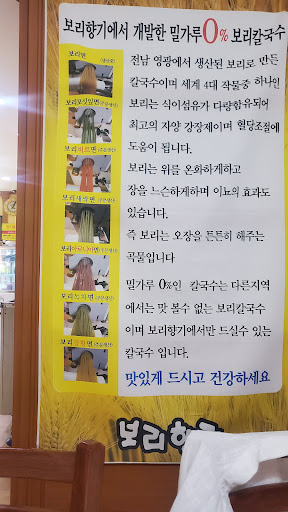 보리향기에서 개발한 밀가루0% 보리칼국수
보리면
보리모싯잎면(주문생산)
보리비트면(주문생산)
보리새싹면(주문생산)
보리아로니아면(주문생산)
보리녹차면(주문생산)
보리단호박면(주문생산)
전남 영광에서 생산된 보리로 만든
칼국수이며 세계 4대 작물중 하나인
보리는 식이섬유가 다량함유되어
최고의 자양 강장제이며 혈당조절에
도움이 됩니다.
보리는 위를 온화하게하고
장을 느슨하게하며 이뇨의 효과도
있습니다.
즉 보리는 오장을 튼튼히 해주는
곡물입니다
밀가루 0%인 칼국수는 다른지역
에서는 맛 볼수 없는 보리칼국수
이며 보리향기에서만 드실수 있는
칼국수 입니다.
맛있게 드시고 건강하세요
보리향